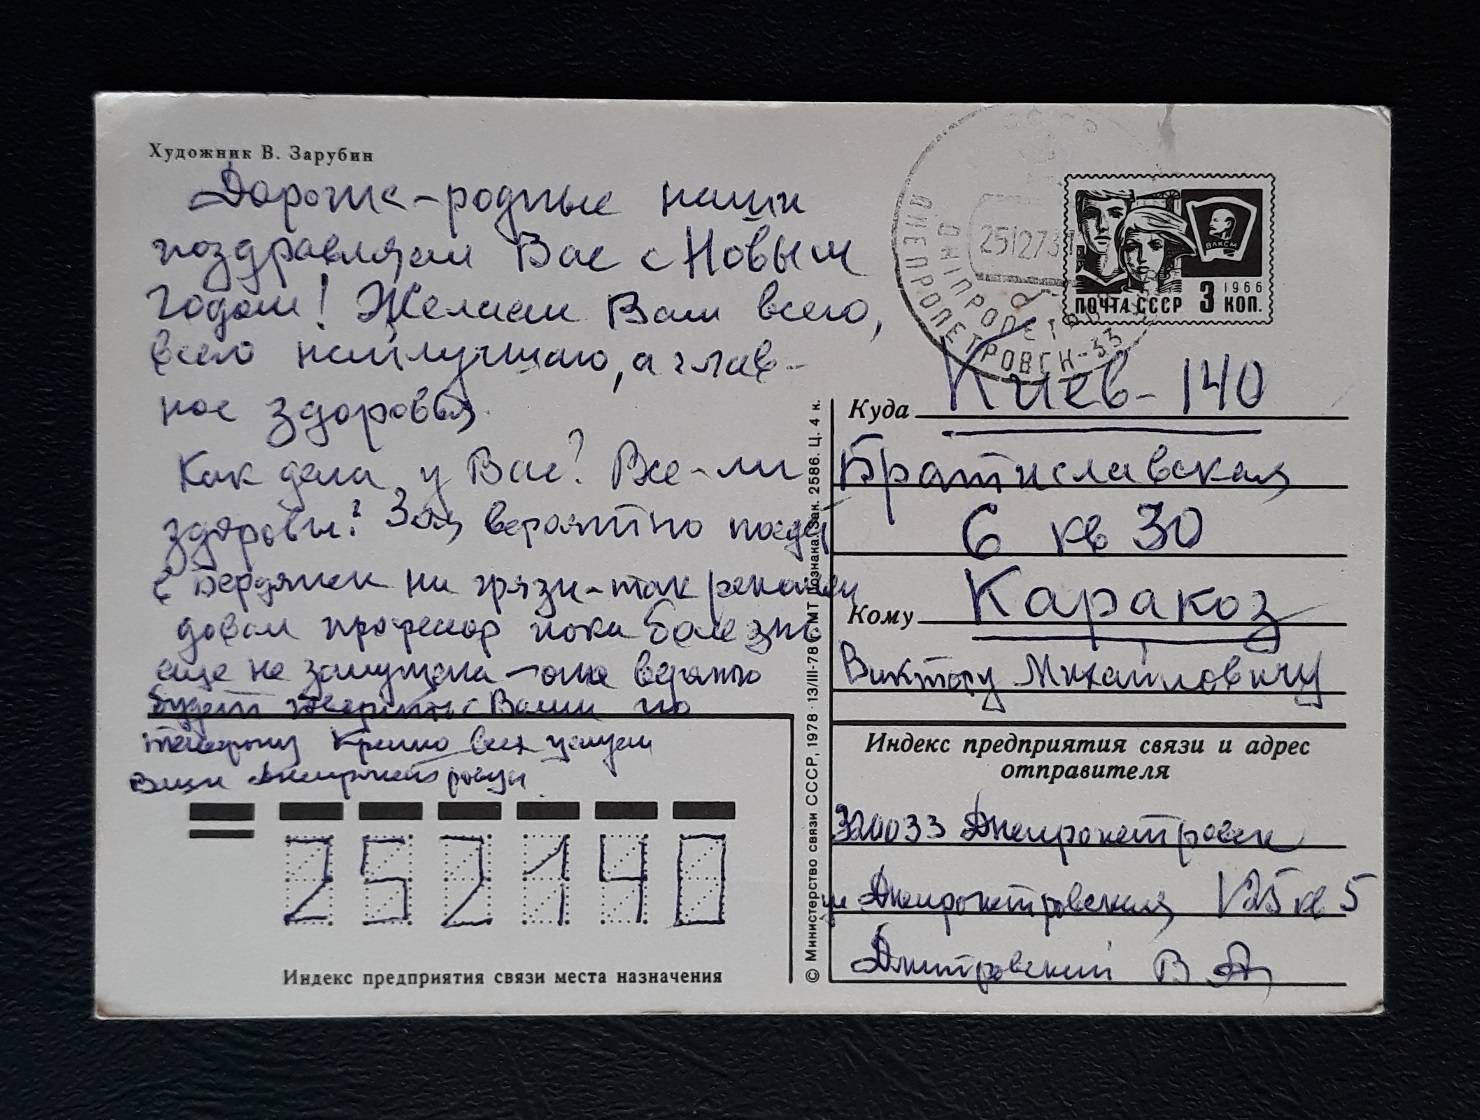 Художник В. Зарубин
Дорогие-родные наши
поздравляем Вас с Новым
Годом! Желаем Вам всего,
всего наилучшего, а глав-
ное здоровья.
Как дела у Вас? Все-ли
здоровы? Зоя вероятно поедет
в Бердянск на грязи-так рекомен
довал профессор пока болезнь
еще не запущена
будет говорить с Вами по
телефону Крепко всех целуем
Ваши Днепропетровцы.
Индекс предприятия связи места назначения
252140
© Министерство связи СССР, 1978. 13/III-78 г. МТ Гознака. Зак. 2586. Ц. 4 к.
СССР
25127
ДНІПРОПЕТ
ДНЕПРОПЕТРОВСК-33
ВЛКСМ
1966
ПОЧТА СССР 3 КОП.
Куда Киев-140
Братиславская
6 кв 30
Кому Каракоз
Виктору Михайловичу
Индекс предприятия связи и адрес
отправителя
320033 Днепропетровск
ул Днепропетровская кв 5
Дмитровский В